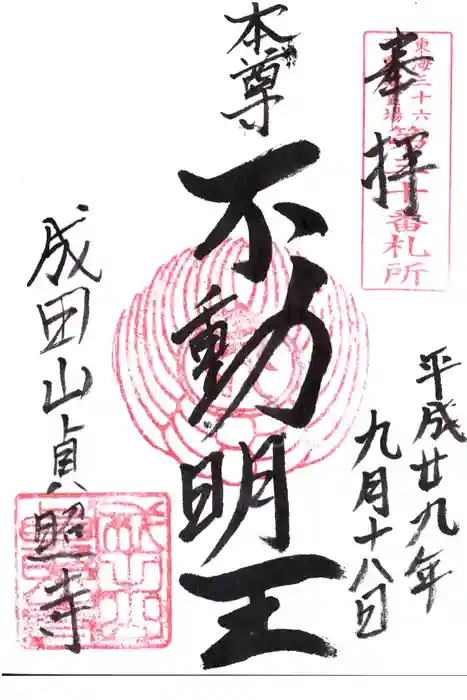 奉拝
東海三十六
第三十番札所
平成廿九年
九月十八日
本尊
不動明王
成田山貞照寺